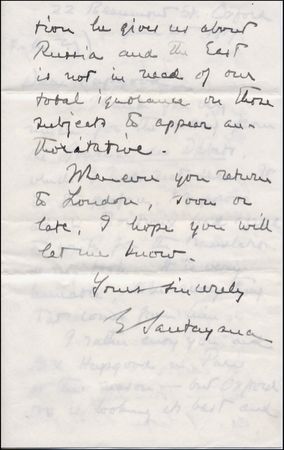 tion he gives us about
Russia and the East
is not in need of our
total ignorance on those
subjects to appear au-
thoritative.
Whenever you return
to London, soon or
late, I hope you will
let me know.
Yours sincerely
G Santayana